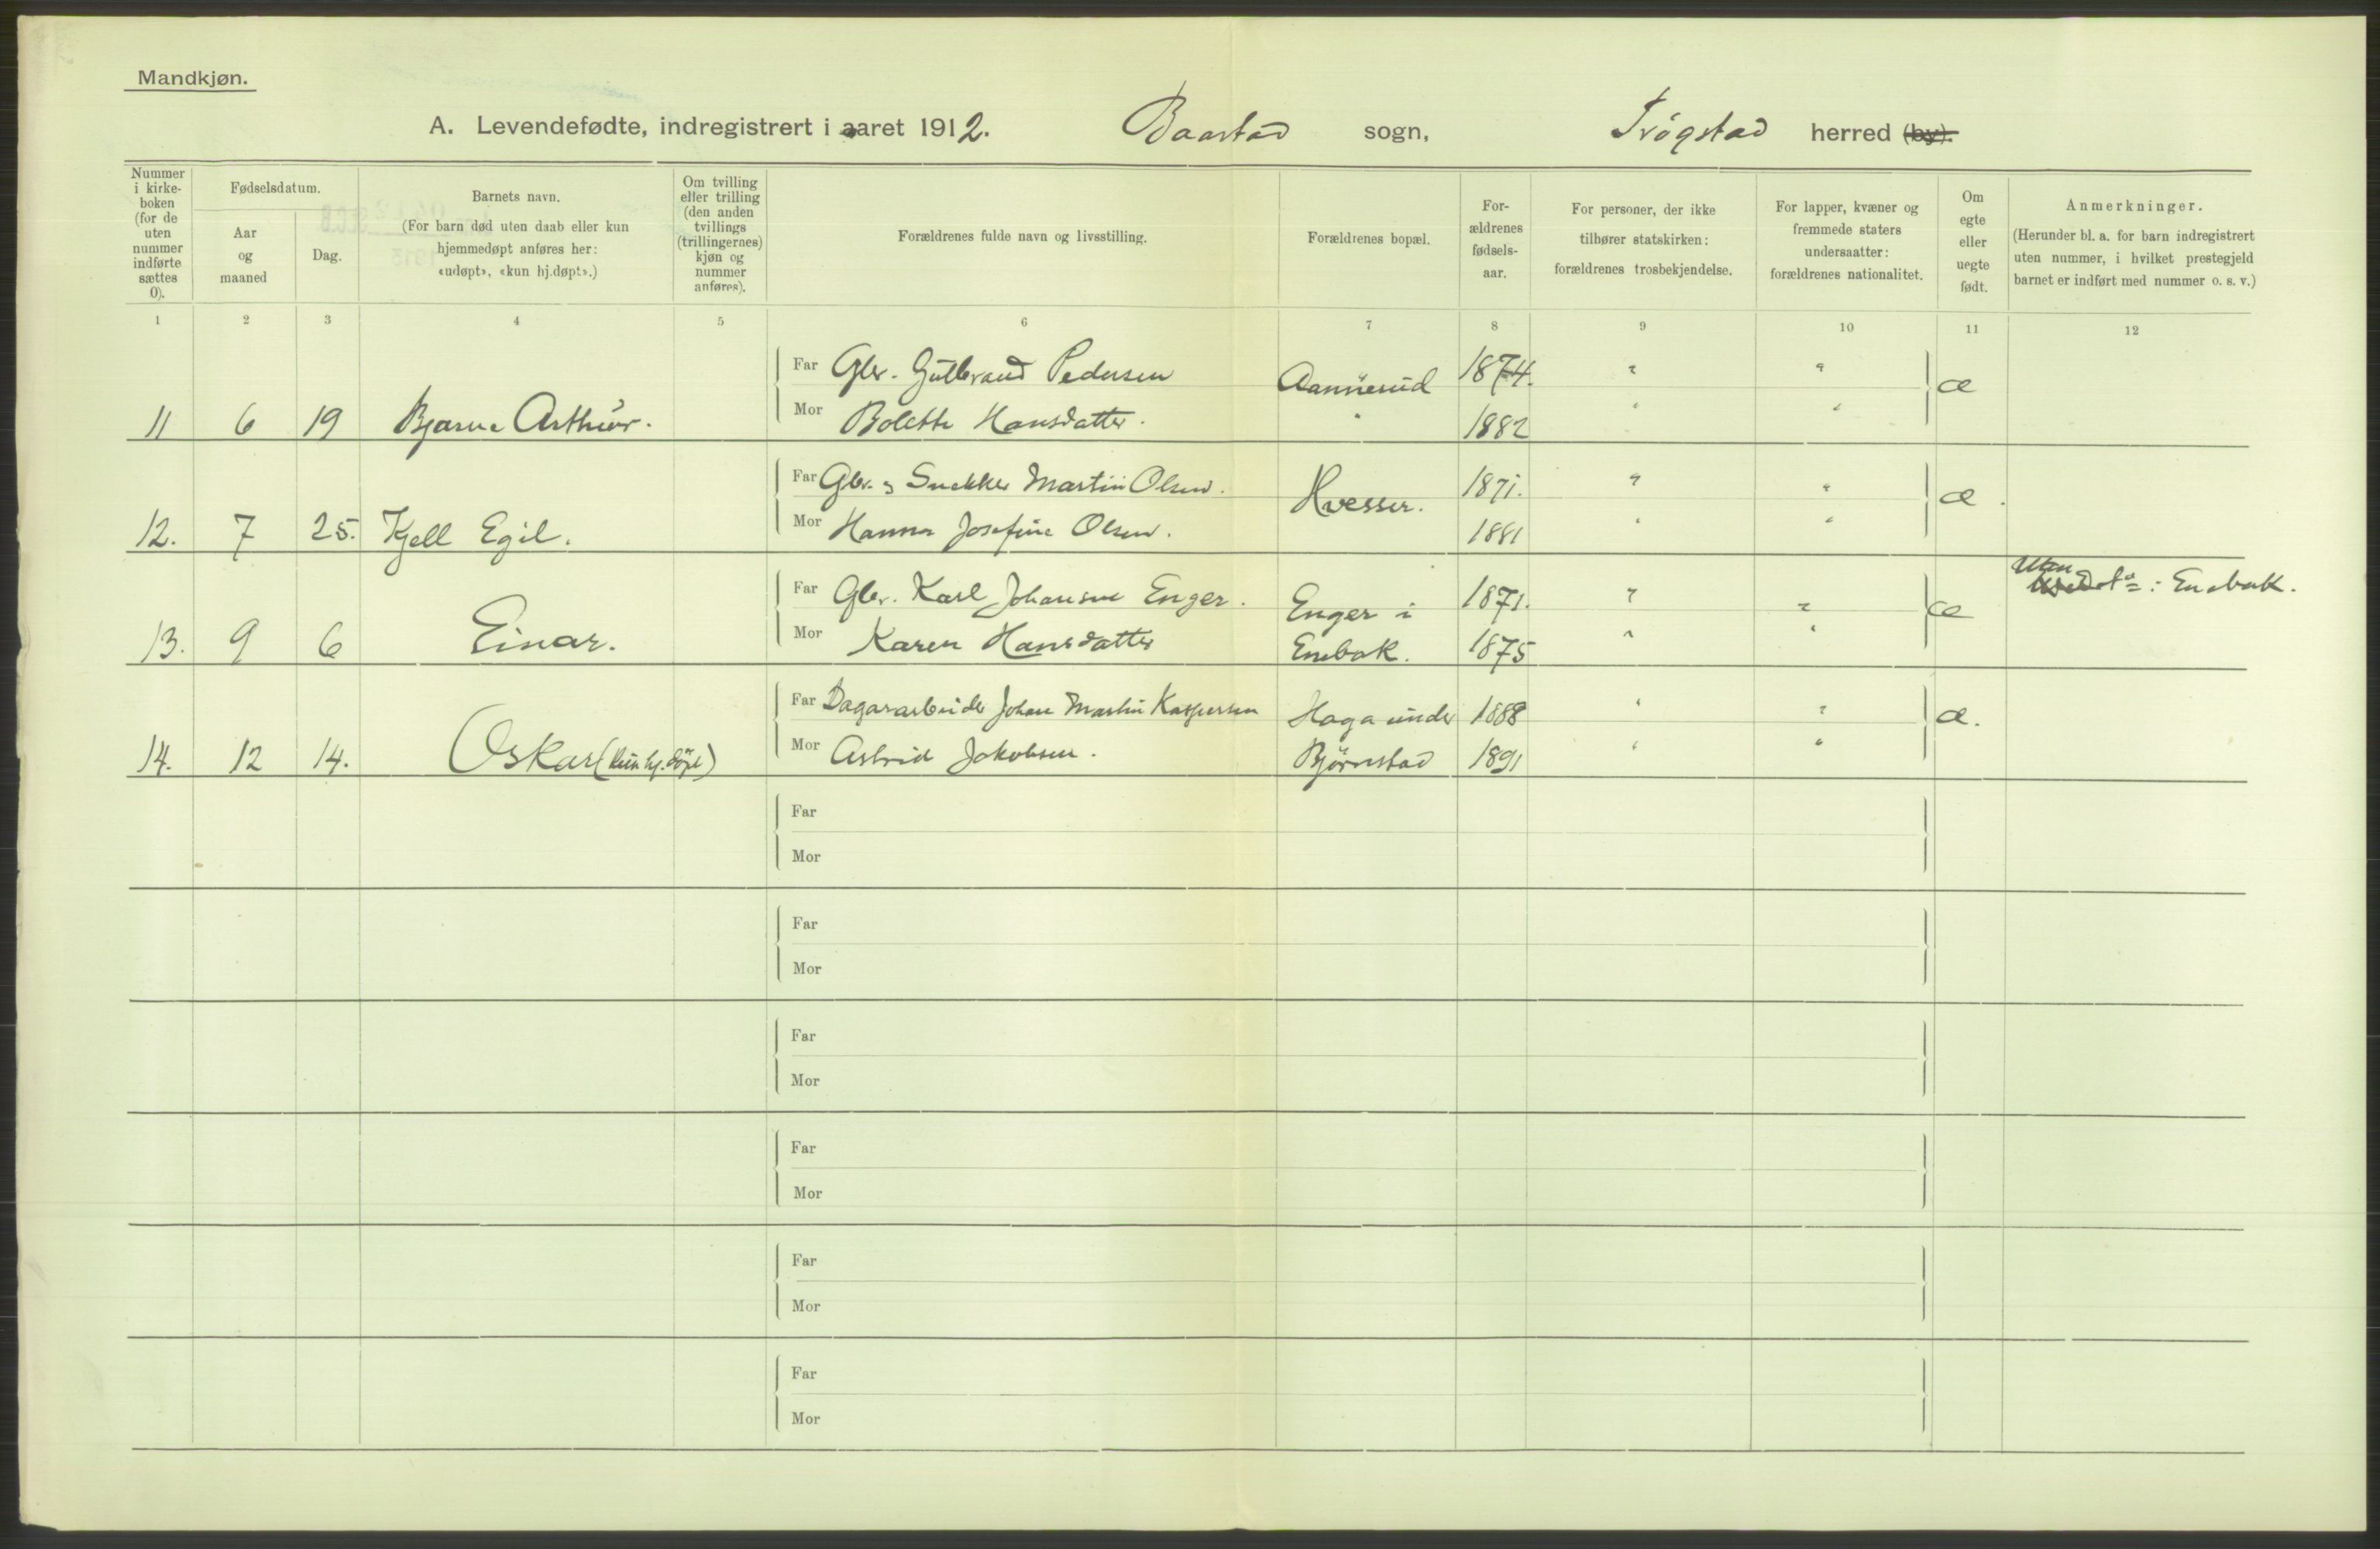 Mandkjøn.
A. Levendefødte, indregistrert i aaret 1912. Baastad sogn, Trøgstad herred (by).
Nummer i kirke-boken (for de uten nummer indførte sættes 0).
Fødselsdatum.
Aar og maaned
Dag.
Barnets navn.
(For barn død uten daab eller kun hjemmedøpt anføres her: «udøpt», «kun hj.døpt».)
Om tvilling eller trilling (den anden tvillings (trillingernes) kjøn og nummer anføres).
Forældrenes fulde navn og livsstilling.
Forældrenes bopæl.
For-ældrenes fødsels-aar.
For personer, der ikke tilhører statskirken: forældrenes trosbekjendelse.
For lapper, kvæner og fremmede staters undersaatter: forældrenes nationalitet.
Om egte eller uegte født.
Anmerkninger.
(Herunder bl. a. for barn indregistrert uten nummer, i hvilket prestegjeld barnet er indført med nummer o. s. v.)
1 2 3 4 5 6 7 8 9 10 11 12
Far Gbr. Gulbrand Pedersen Aannerud 1874. " " æ
11 6 19 Bjarne Arthur. Mor Bolette Hansdatter. " 1882 " "
Far Gbr. & Snekker Martin Olsen. Hvesser. 1871. " " æ.
12. 7 25. Kjell Egil. Mor Hanna Josefine Olsen. 1881 " "
Far Gbr. Karl Johansen Enger. Enger i 1871. " " æ Uten : Enebak.
13. 9 6 Einar. Mor Karen Hansdatter Enebak. 1875 " "
Far Dagsarbeider Johan Martin Kaspersen Haga under 1888 " " æ.
14. 12 14. Oskar (kun hj. døpt) Mor Astrid Jakobsen. Bjørnstad 1891 " "
Far
Mor
Far
Mor
Far
Mor
Far
Mor
Far
Mor
Far
Mor